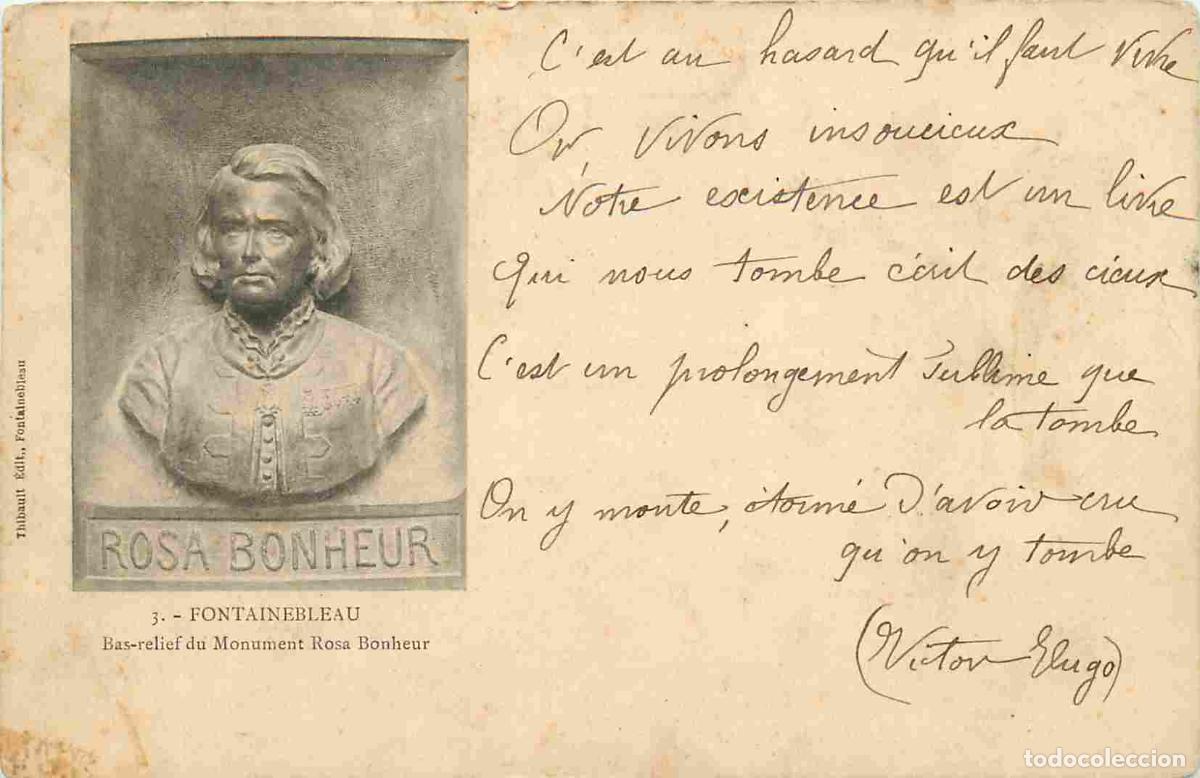 C'est au hasard qu'il faut vivre
Or, vivons insoucieux
Notre existence est un livre
qui nous tombe écrit des cieux
C'est un prolongement Sublime que
la tombe
On y monte, étonné d'avoir cru
qu'on y tombe
(Victor Hugo)
ROSA BONHEUR
3. - FONTAINEBLEAU
Bas-relief du Monument Rosa Bonheur
Thibault Édit., Fontainebleau
todocoleccion